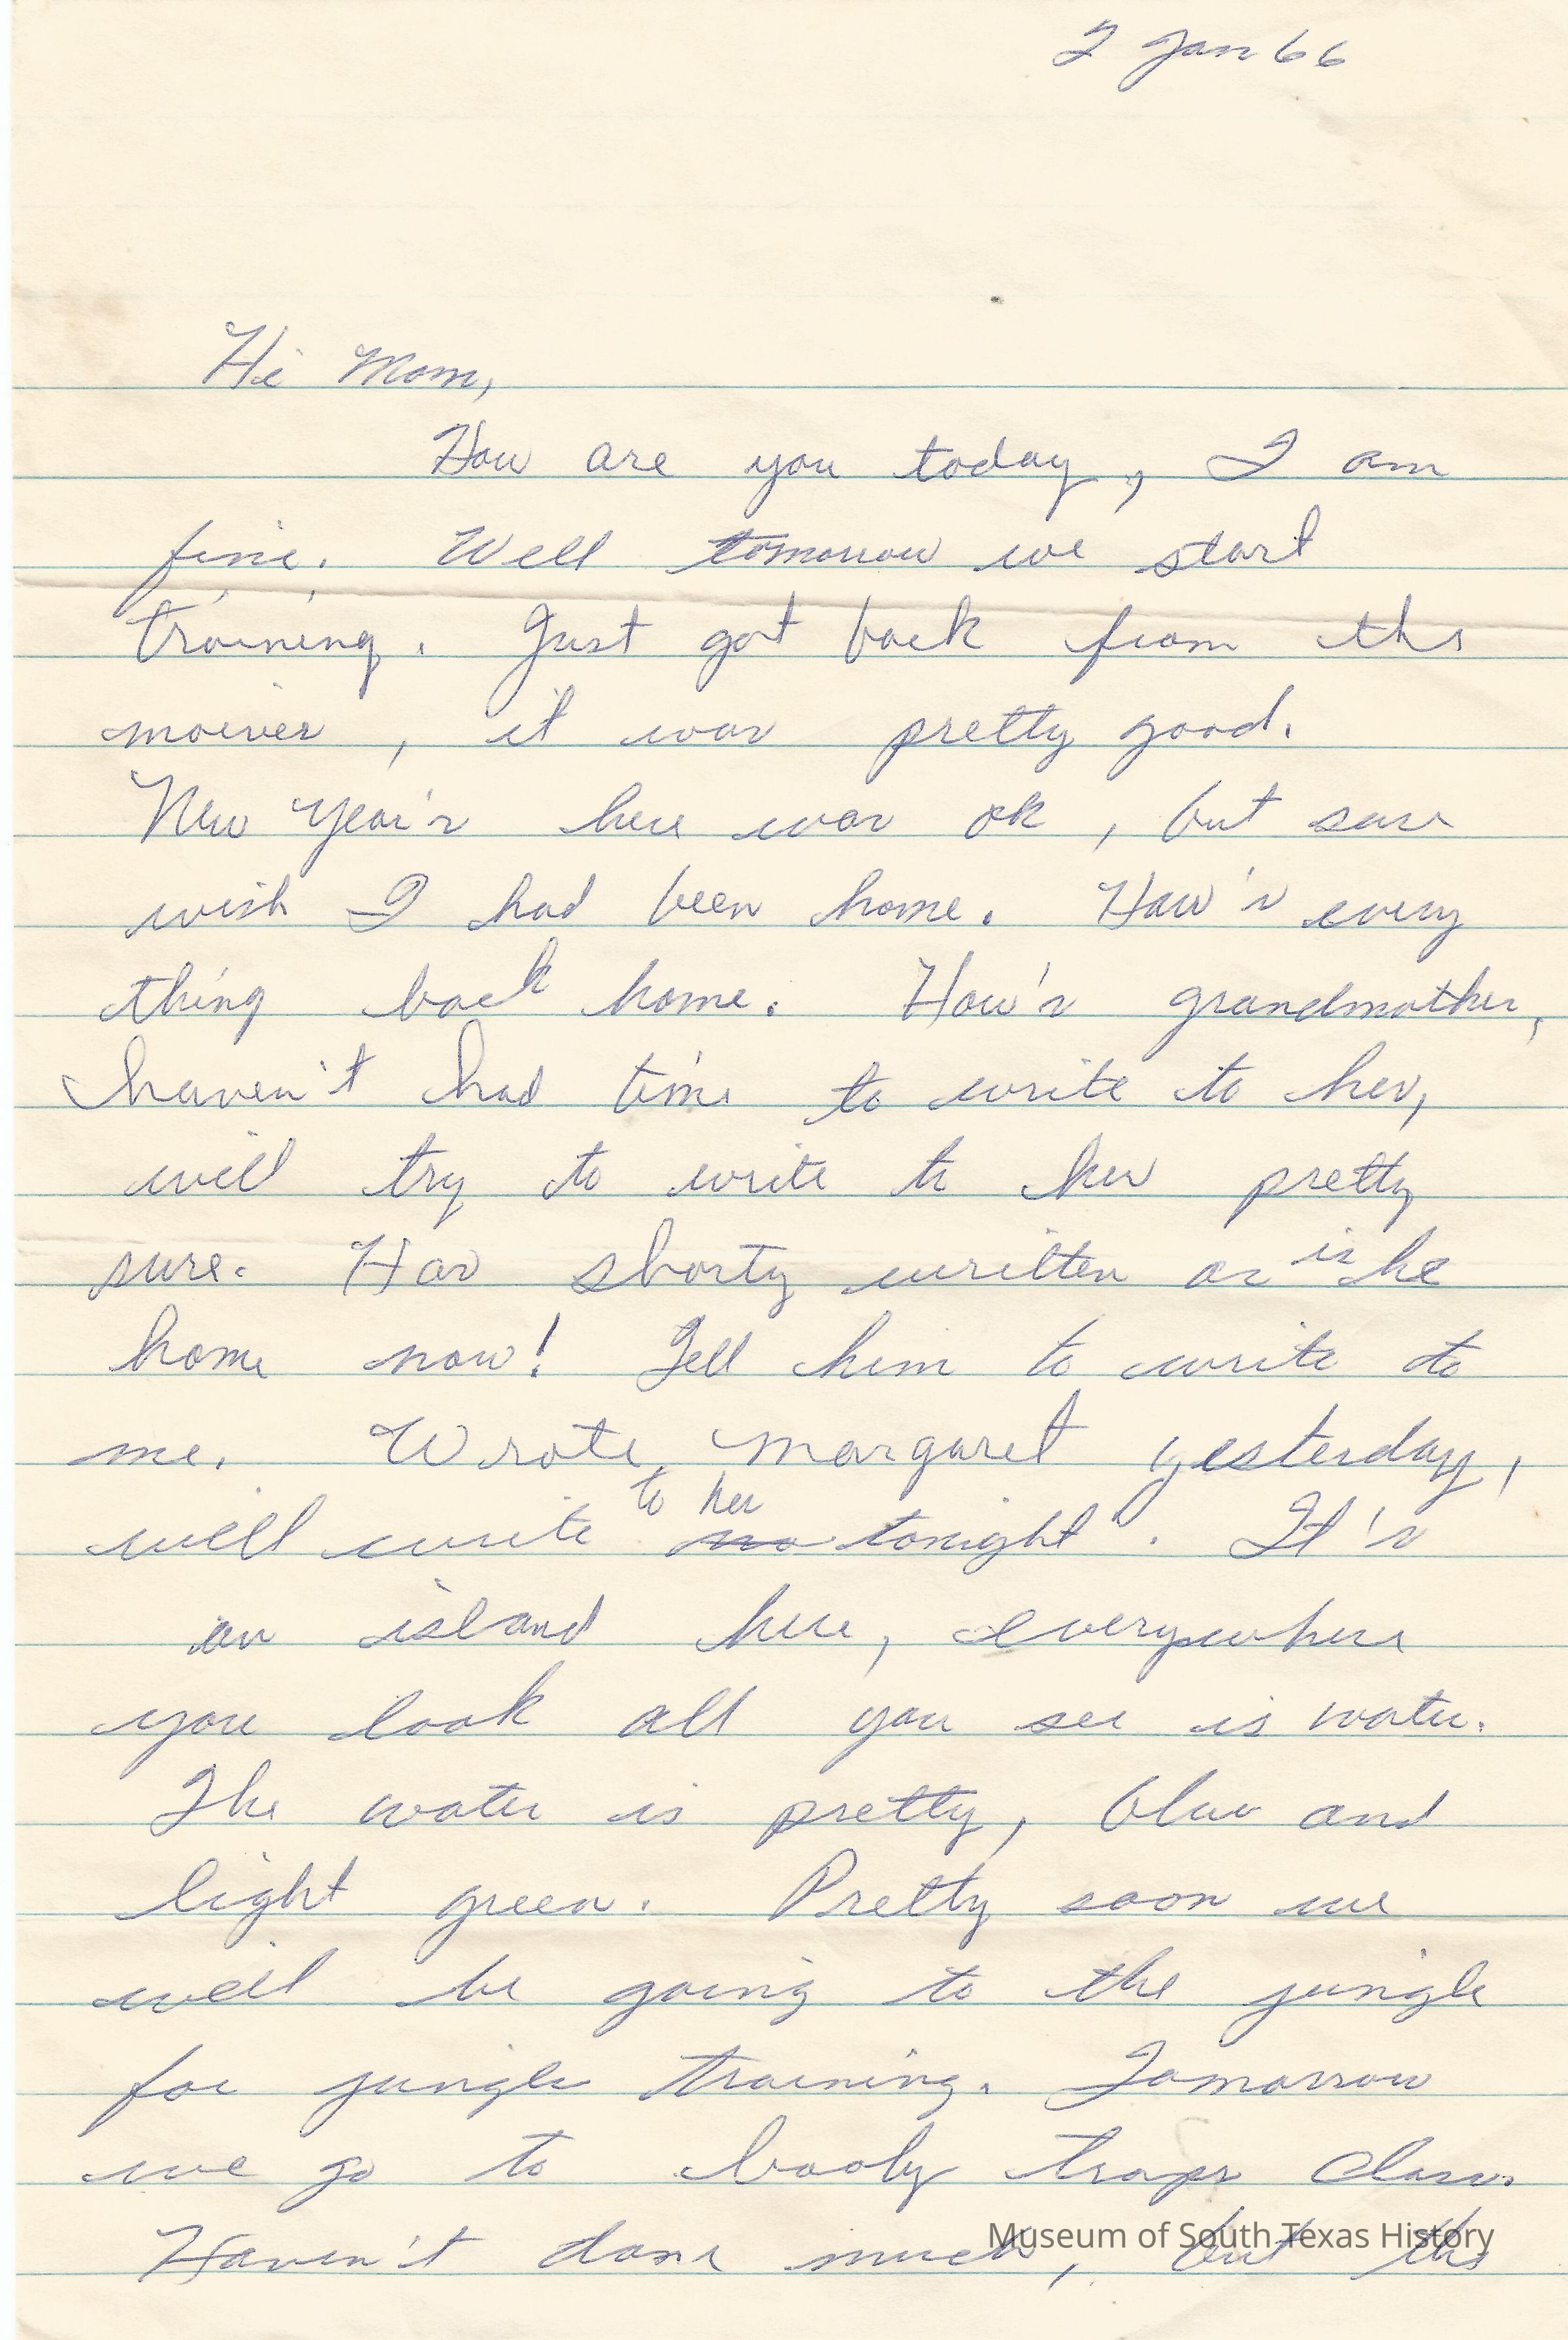 2 Jan 66
Hi Mom,
How are you today, I am
fine. Well tomorrow we start
training. Just got back from the
moivies, it was pretty good.
New Year's here was ok, but sure
wish I had been home. How's every
thing back home. How's grandmother,
haven't had time to write to her,
will try to write to her pretty
sure. Has shorty written or is he
home now! Tell him to write to
me. Wrote Margaret yesterday,
will write to her no tonight. It's
an island here, everywhere
you look all you see is water.
The water is pretty, blue and
light green. Pretty soon we
will be going to the jungle
for jungle training. Tomorrow
we go to booby traps class.
Haven't done much, but the
Museum of South Texas History